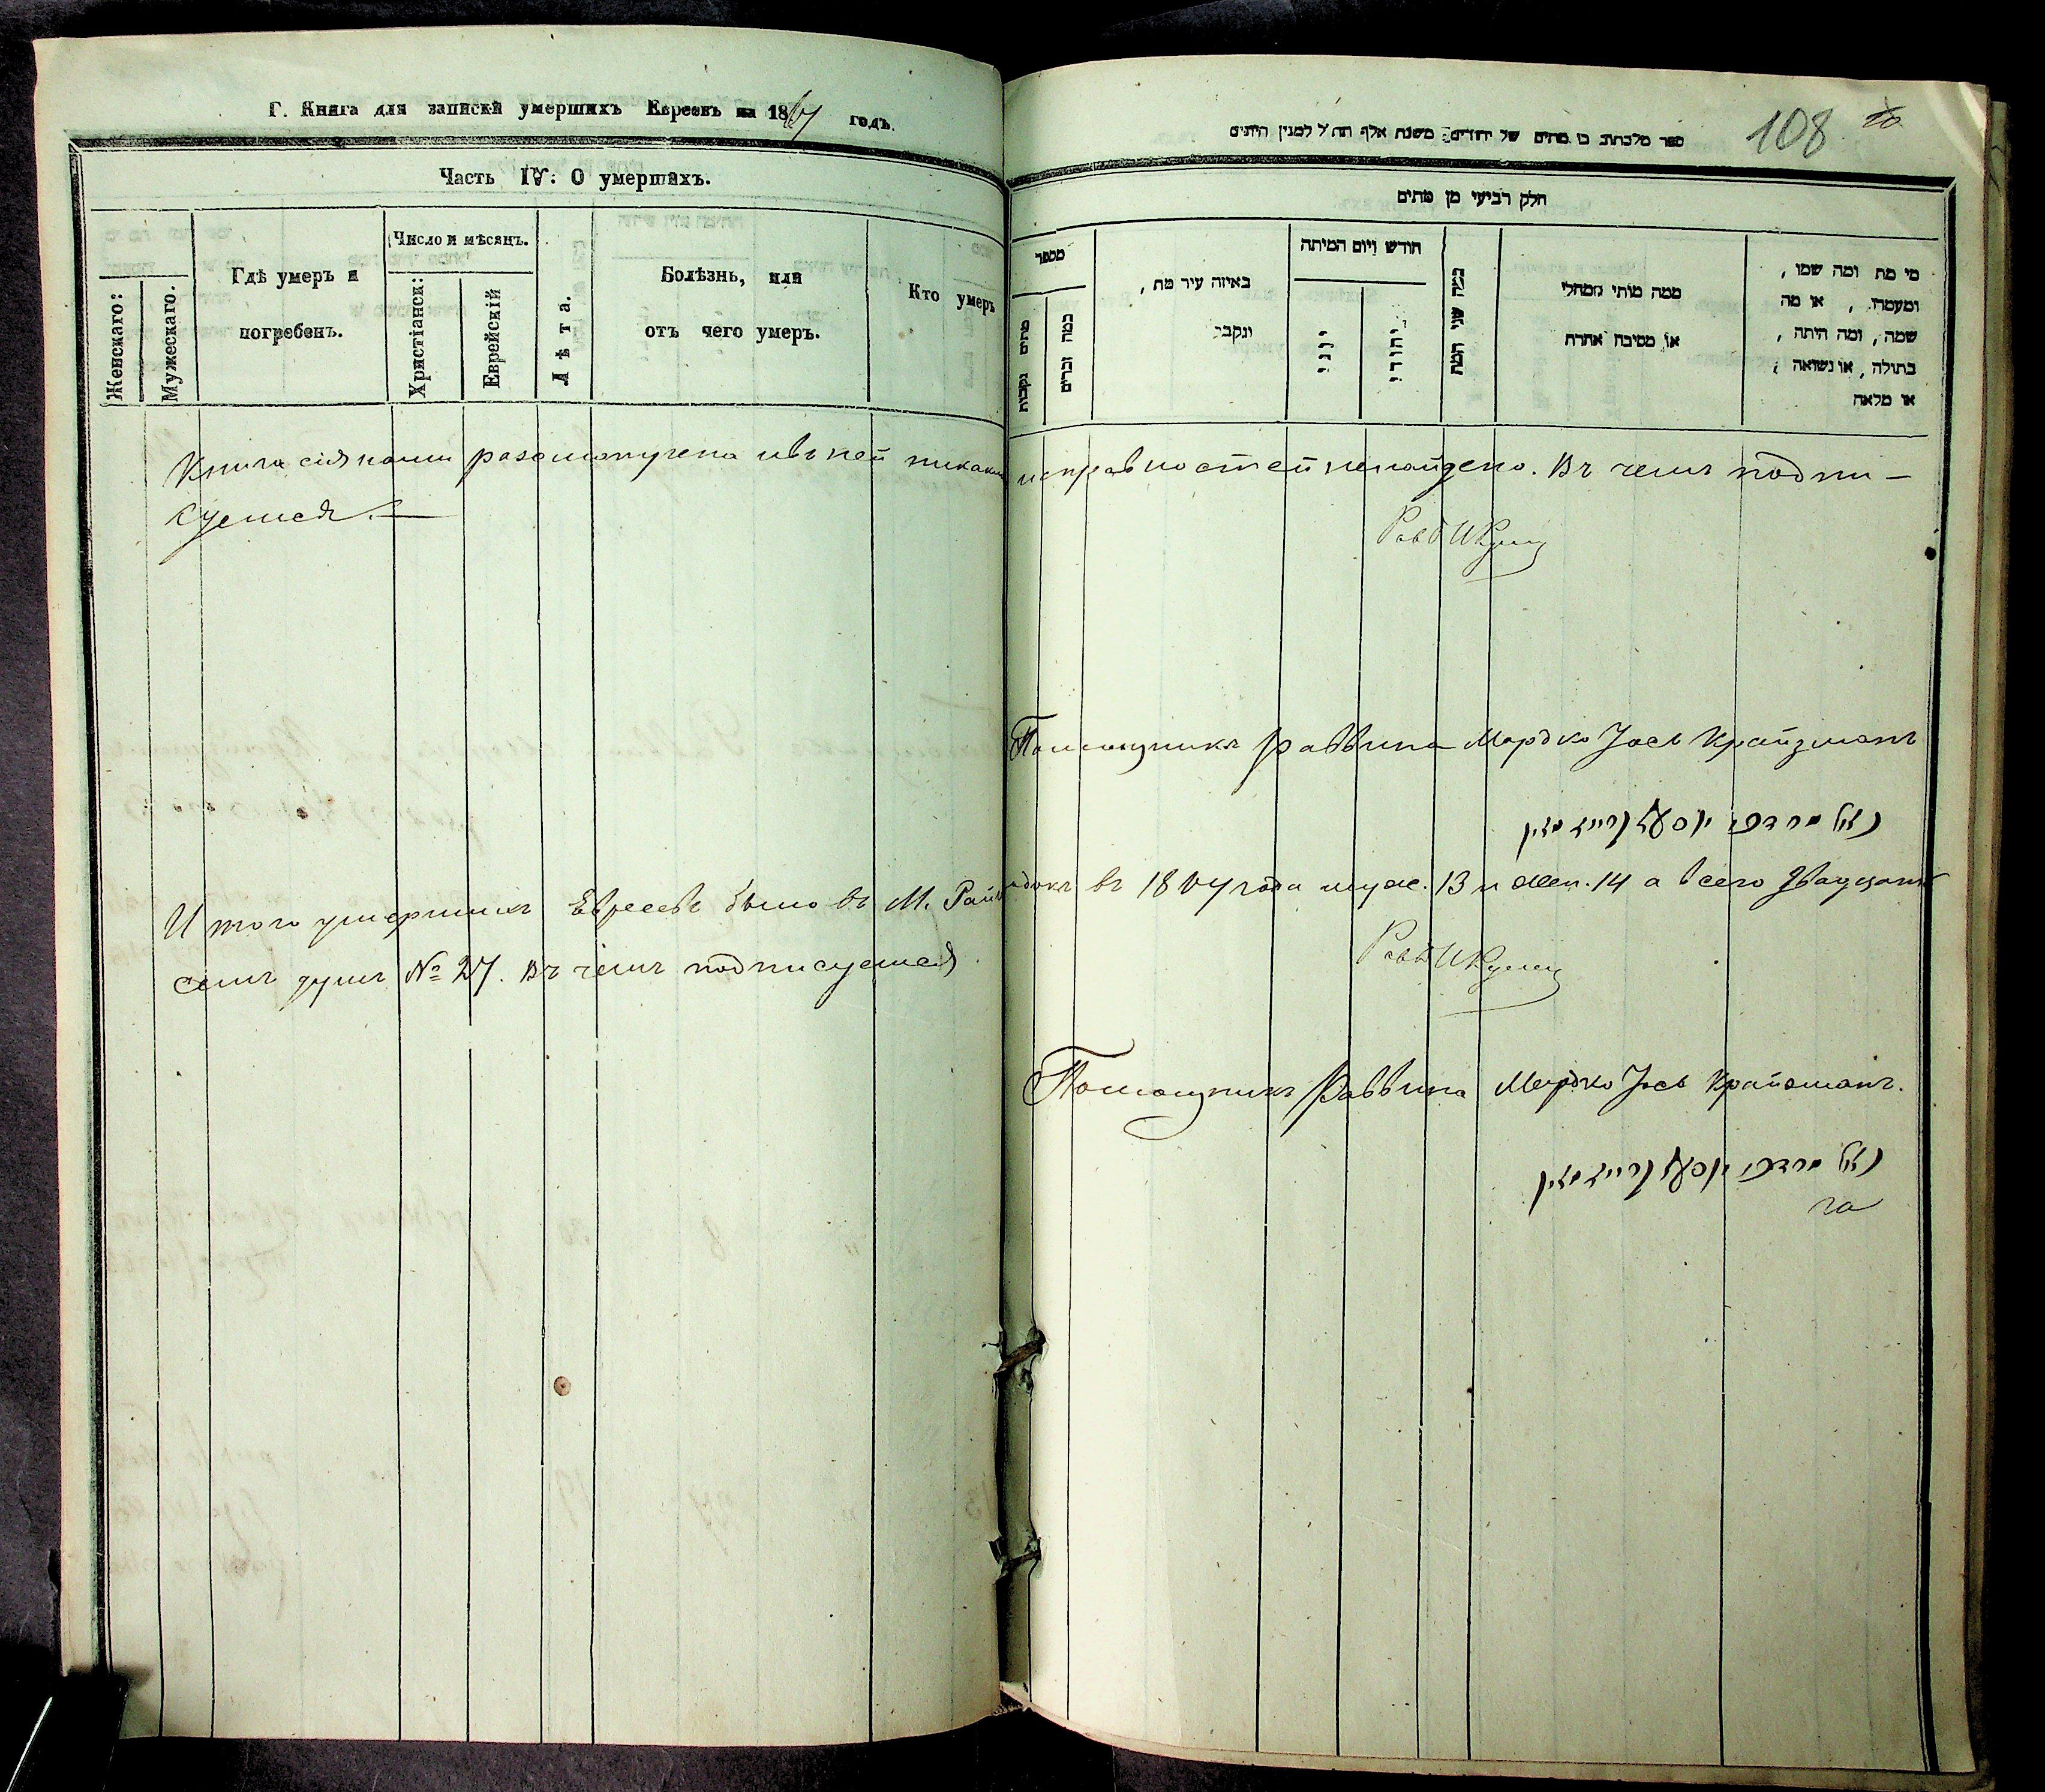 Г. Книга для записки умершихъ Евреевъ на 1867 годъ.
Часть IV. О умершихъ.
Женскаго:
Мужескаго.
Гдѣ умеръ и
погребенъ.
Число и мѣсяцъ.
Христіанск:
Еврейскій
Лѣта.
Болѣзнь, или
отъ чего умеръ.
Кто умеръ
108
חלק רביעי מן מתים
מספר
מתים נקבות
כמה זכרים
באיזה עיר מת,
ונקבר
חודש ויום המיתה
יווני
יהודי
כמה שני המת
ממה מותי ממחלי
או מסיבה אחרת
מי מת ומה שמו,
ומעמדו, או מה
שמה, ומה היתה,
בתולה, או נשואה
או מלאה
Книга сія нами разсмотрена и въ ней никаких исправностей ненайдено. Въ чемъ подпи-
суемся.
Помощникъ раввина Мордко Іось Крайзманъ
Итого умершихъ Евреевъ было въ М. 1867 года муж. 13 и жен. 14 а всего двадцать
семь душъ № 27. Въ чемъ подписуемся
Помощникъ Раввина Мордко Іось Крайзманъ.